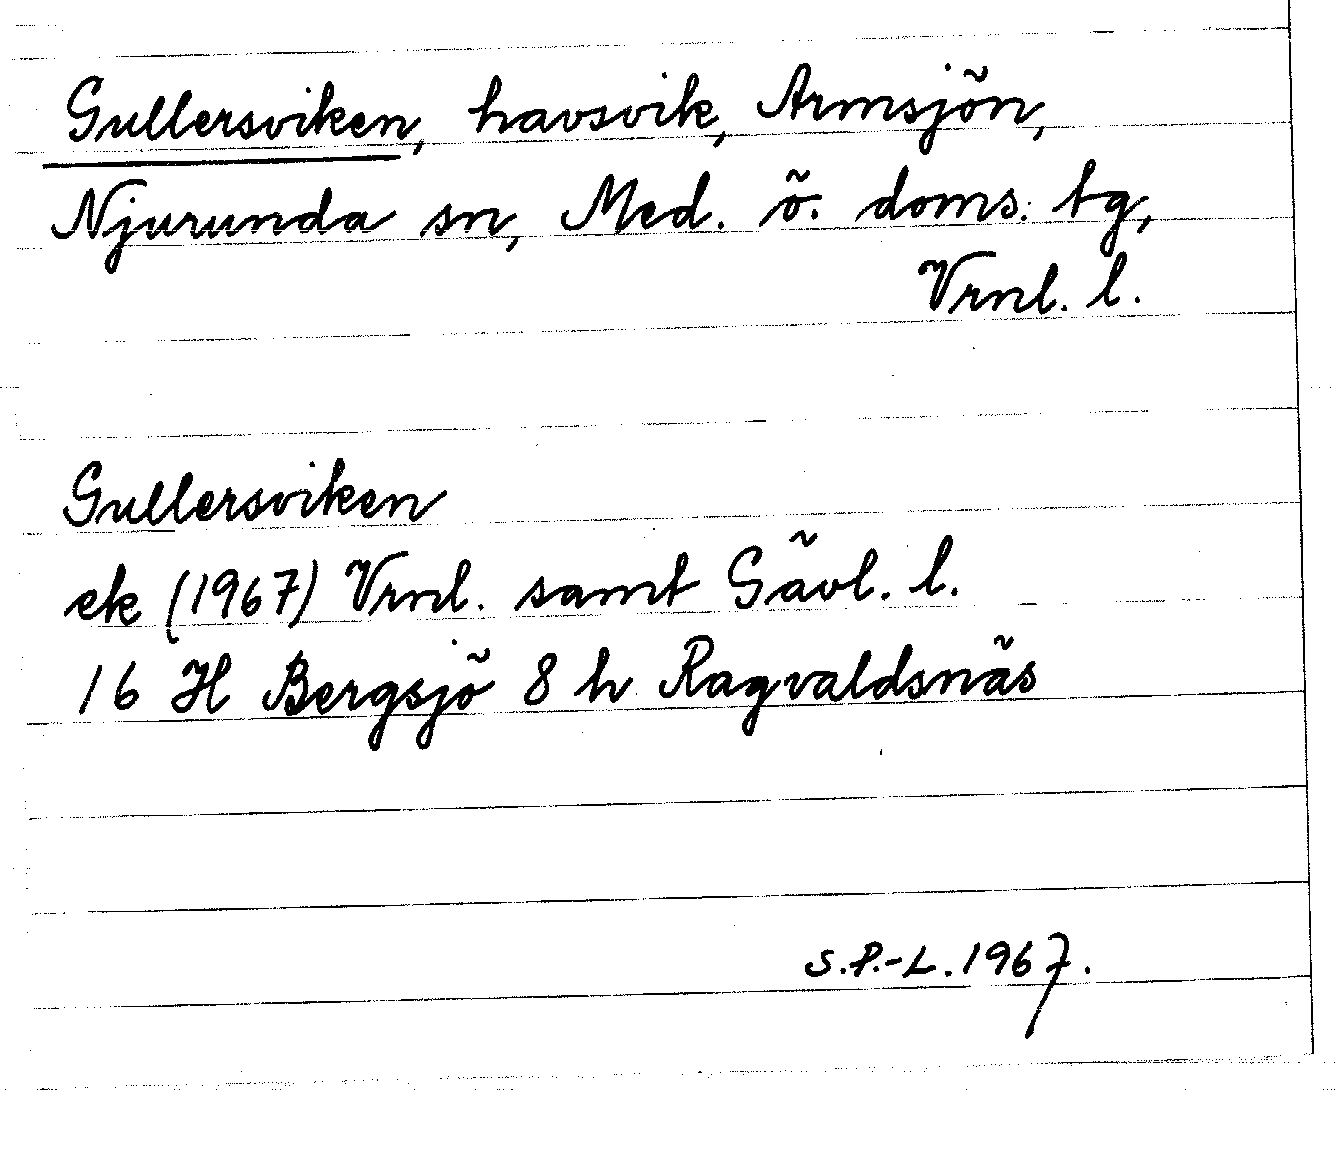 Gullersviken, havsvik, Armsjön,
Njurunda sn, Med. ö. doms. tg,
Vrnl. l.
Gullersviken
ek (1967) Vrnl. samt Gävl. l.
16 H Bergsjö 8 h Ragvaldsnäs
S.P.-L. 1967.